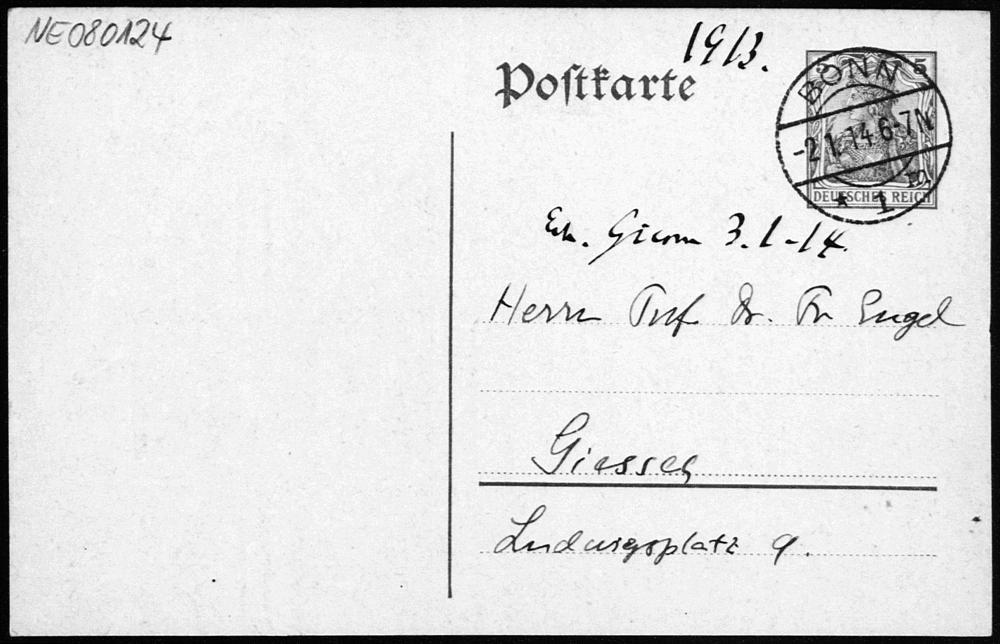 NE080124
1913.
Postkarte
5
BONN
-2.1.14.6-7N
* 1 B
DEUTSCHES REICH
Erh. Giessen 3.1.14.
Herrn Prof. Dr. Fr Engel
Giessen
Ludwigsplatz 9.